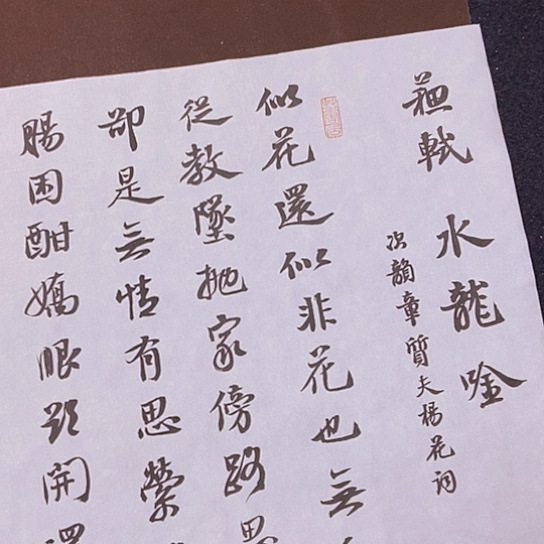 蘓軾 水龍唫
次韻章質夫楊花詞
似花還似非花也無
從教墜抛家傍路思
卻是無情有思縈
腸困酣嬌眼欲開還